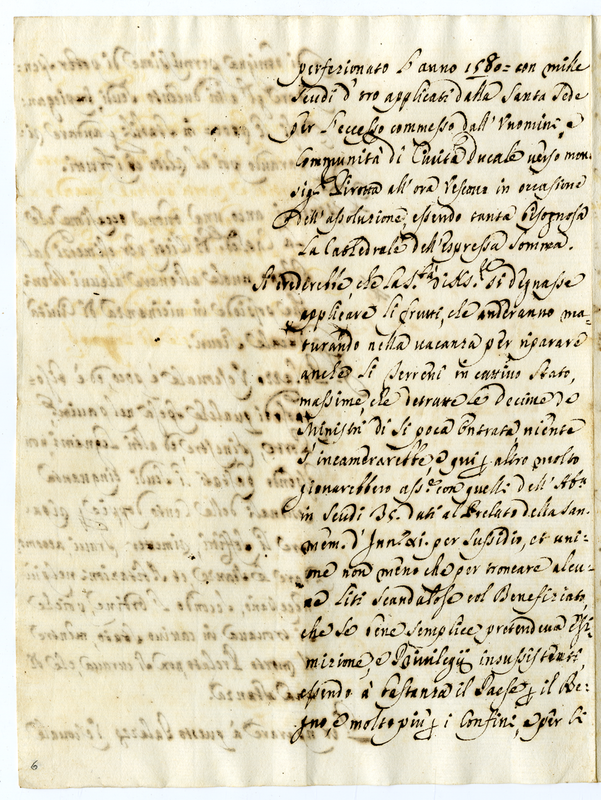 perfezionato l'anno 1580= con mille
scudi d'oro applicati dalla Santa Sede
per l'eccesso commesso dall'Vuomini, e
Communità di Civita ducale verso mon=
sigr. Pirotta all'ora Vescovo in occasione
dell'assoluzione, essendo tanta bisognosa
la Cathedrale dell'espressa somma.
si degnasse
applicare li frutti, che anderanno ma=
turando nella vacanza per riparare
anche li terreni in cattivo stato,
massime, che detratte le decime, e
Ministri di sì poca entrata, niente
s'incamerarebbe, e qui altro molto
giovarebbero con quelli dell'
in scudi 35. dati al Prelato della san.
mem. d'Inn. xi. per sussidio, et uni=
one non meno che per troncare alcu=
ne liti scandalose col Beneficiato,
che se bene semplice pretendeva esi=
mizione, e Privilegij insussistenti,
essendo à bastanza il Paese il Re=
gno e molto più i Confini, e per li
6